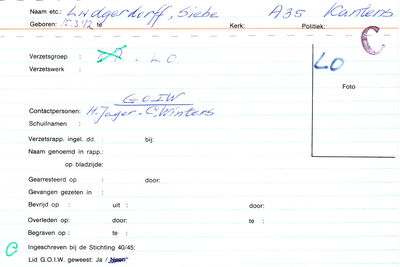 Naam etc.: Ludgerdorff, Siebe A35 Kantens
Geboren: 15.3.'12 te Kerk: Politiek:
C
Verzetsgroep : L.O. LO
Verzetswerk :
Foto
G.O.I.W
Contactpersonen: H. Jager - C. Winters
Schuilnamen :
Verzetsrapp. ingel. dd. : bij:
Naam genoemd in rapp.:
op bladzijde:
Gearresteerd op : door:
Gevangen gezeten in :
Bevrijd op : uit : door:
Overleden op: door: te :
Begraven op : te :
C Ingeschreven bij de Stichting 40/45:
Lid G.O.I.W. geweest: Ja / Neen